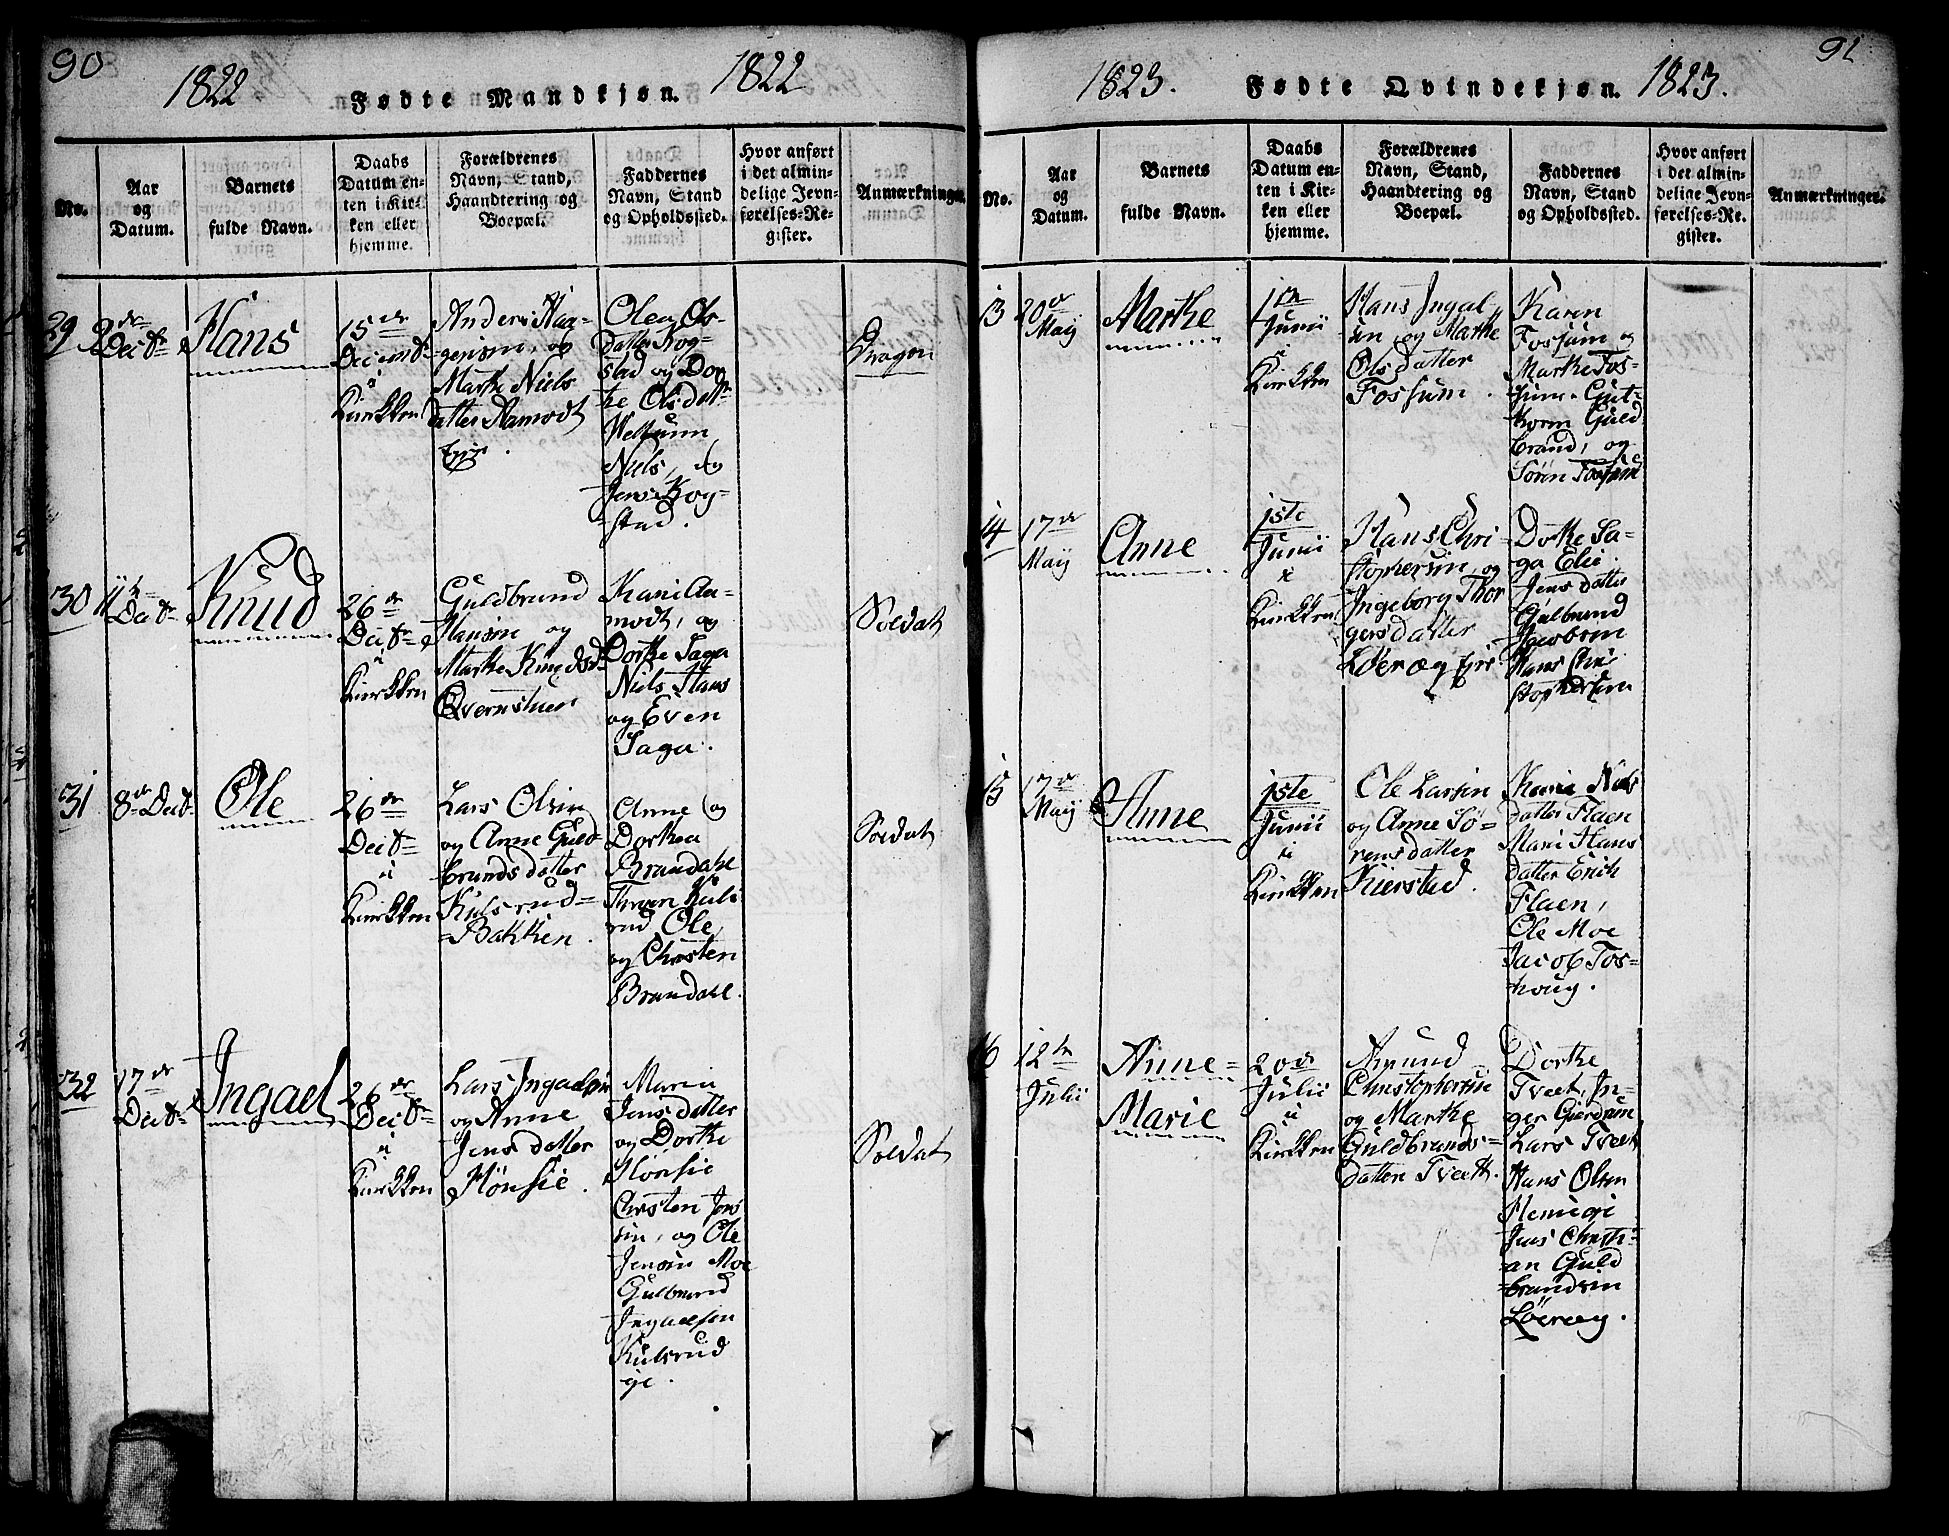 90
1822
Fødte Mandkjøn.
1822
No.
Aar
og
Datum.
Barnets
fulde Navn.
Daabs
Datum en-
ten i Kir-
ken eller
hjemme.
Forældrenes
Navn, Stand,
Haandtering og
Boepæl.
Faddernes
Navn, Stand
og Opholdssted.
Hvor anført
i det almin-
delige Jevn-
førelses-Re-
gister.
Anmærkninger.
29
Hans
15de
Decembr
i
Kirkken
og
Marthe Niels
datter Aamodt
Eie.
Olea Ols-
datter Rog-
stad og Dor
the Olsdatr
Niels, og
Jens Rog-
stad.
Dragon
30
11te
Decbr
Knud
26de
Decbr
i
Kirkken
Guldbrand
Hansen og
Marthe Knudsd.
Qvernstuen
Kari Aa-
modt, og
Dorthe Saga
Niels Hans
og Even
Saga.
Soldat
31
8de Decbr
Ole
26de
Decbr
i
Kirkken
Lars Olsen
og Anne Guld
brandsdatter
Kulsrud-
Bakken.
Anne og
Dorthea
Brandahl
Kuls
rud Ole,
og Christen
Brandahl.
Soldat
32
17de
Decbr
Ingael
26de
Decbr
i
Kirkken
Lars Ingaelsen
og Anne
Jensdatter
Hønsie.
Maria
Jensdatter
og Dorthe
Hønsie
Christen Jens
sen, og Ole
Jensen Moe
Gulbrand
Ingaelsen
Kulsrud
eje.
Soldat
91
1823.
Fødte Qvindekjøn.
1823.
No.
Aar
og
Datum.
Barnets
fulde Navn.
Daabs
Datum en-
ten i Kir-
ken eller
hjemme.
Forældrenes
Navn, Stand,
Haandtering og
Boepæl.
Faddernes
Navn, Stand
og Opholdssted.
Hvor anført
i det almin-
delige Jevn-
førelses-Re-
gister.
Anmærkninger.
13
20de
Maij
Marthe
1ste
Junii
i
Kirkken
Hans Ingal-
sen og Marthe
Olsdatter
Fossum.
Karen
Fossum og
Marthe Fos-
sum. Gut-
thorm Guld
brand, og
Søren Fossum
14
17de
Maij
Anne
1ste
Junii
i
Kirkken
Hans Chri-
stophersen, og
Ingeborg Thor
gersdatter
Dorthe Sa-
ga Elie
Jensdatter
Gulbrand
Jacobsen
Hans Chri
stophersen
15
17de
Maij
Anne
1ste
Junii
i
Kirkken
Ole Larsen
og Anne Sø-
rensdatter
Kierstad.
Kari Niels
datter Flaen
Mari Hans
datter Erich
Flaen,
Ole Moe
Jacob Fos-
houg.
16
12te
Julii
Anne-
Marie
20de
Julii
i
Kirkken
Amund
Christophersen
og Marthe
Guldbrands-
datter Tveeth.
Dorthe
Tveet, In-
ger Gierdrum
Lars Tveet
Hans Olsen
Jens Christi-
an Guld
brandsen